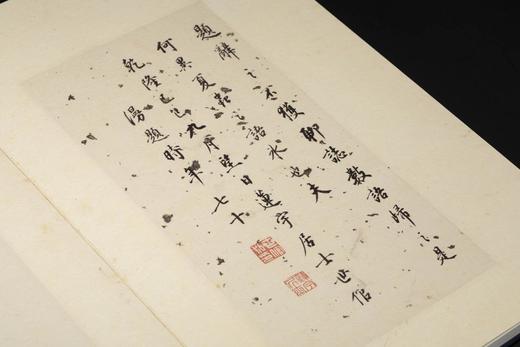 題辭之不獲聊誌數語歸之是
何異夏蟲之語冰也夫
乾隆己巳九月望日蓮宇居士世倌
漫題時年七十